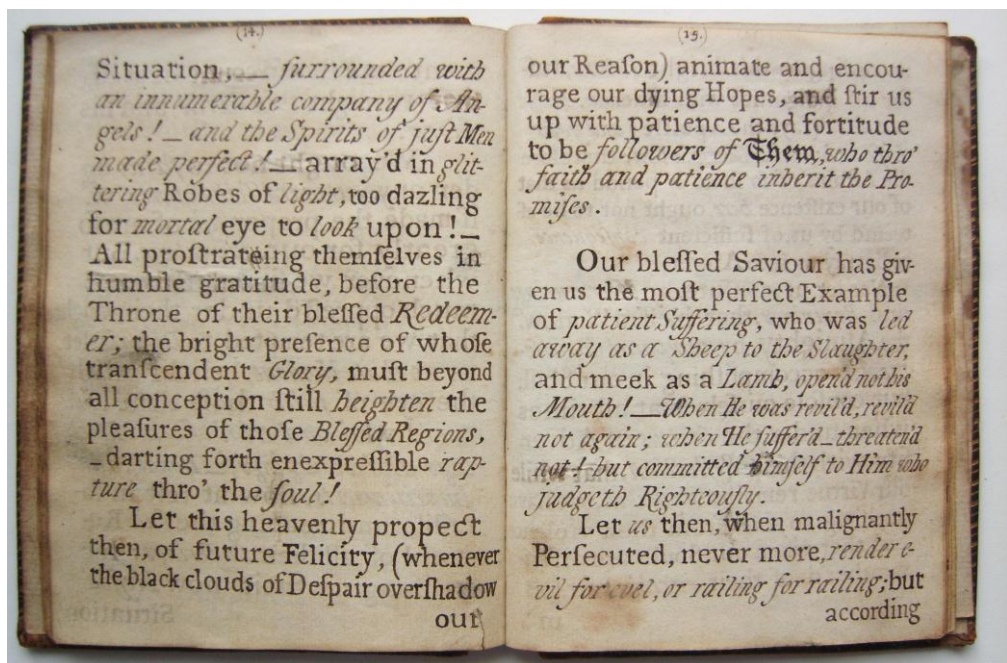 (14.)
Situation, — ſurrounded with
an innumerable company of An-
gels! — and the Spirits of juſt Men
made perfect! — array'd in glit-
tering Robes of light, too dazling
for mortal eye to look upon! —
All proſtrateing themſelves in
humble gratitude, before the
Throne of their bleſſed Redeem-
er; the bright preſence of whoſe
tranſcendent Glory, muſt beyond
all conception ſtill heighten the
pleaſures of thoſe Bleſſed Regions,
— darting forth enexpreſſible rap-
ture thro' the ſoul!
Let this heavenly propect
then, of future Felicity, (whenever
the black clouds of Deſpair overſhadow
our
(15.)
our Reaſon) animate and encou-
rage our dying Hopes, and ſtir us
up with patience and fortitude
to be followers of Them, who thro'
faith and patience inherit the Pro-
miſes.
Our bleſſed Saviour has giv-
en us the moſt perfect Example
of patient Suffering, who was led
away as a Sheep to the Slaughter,
and meek as a Lamb, open'd not his
Mouth! — When He was revil'd, revil'd
not again; when He ſuffer'd — threaten'd
not! — but committed himſelf to Him who
judgeth Righteouſly.
Let us then, when malignantly
Perſecuted, never more, render e-
vil for evel, or railing for railing; but
according